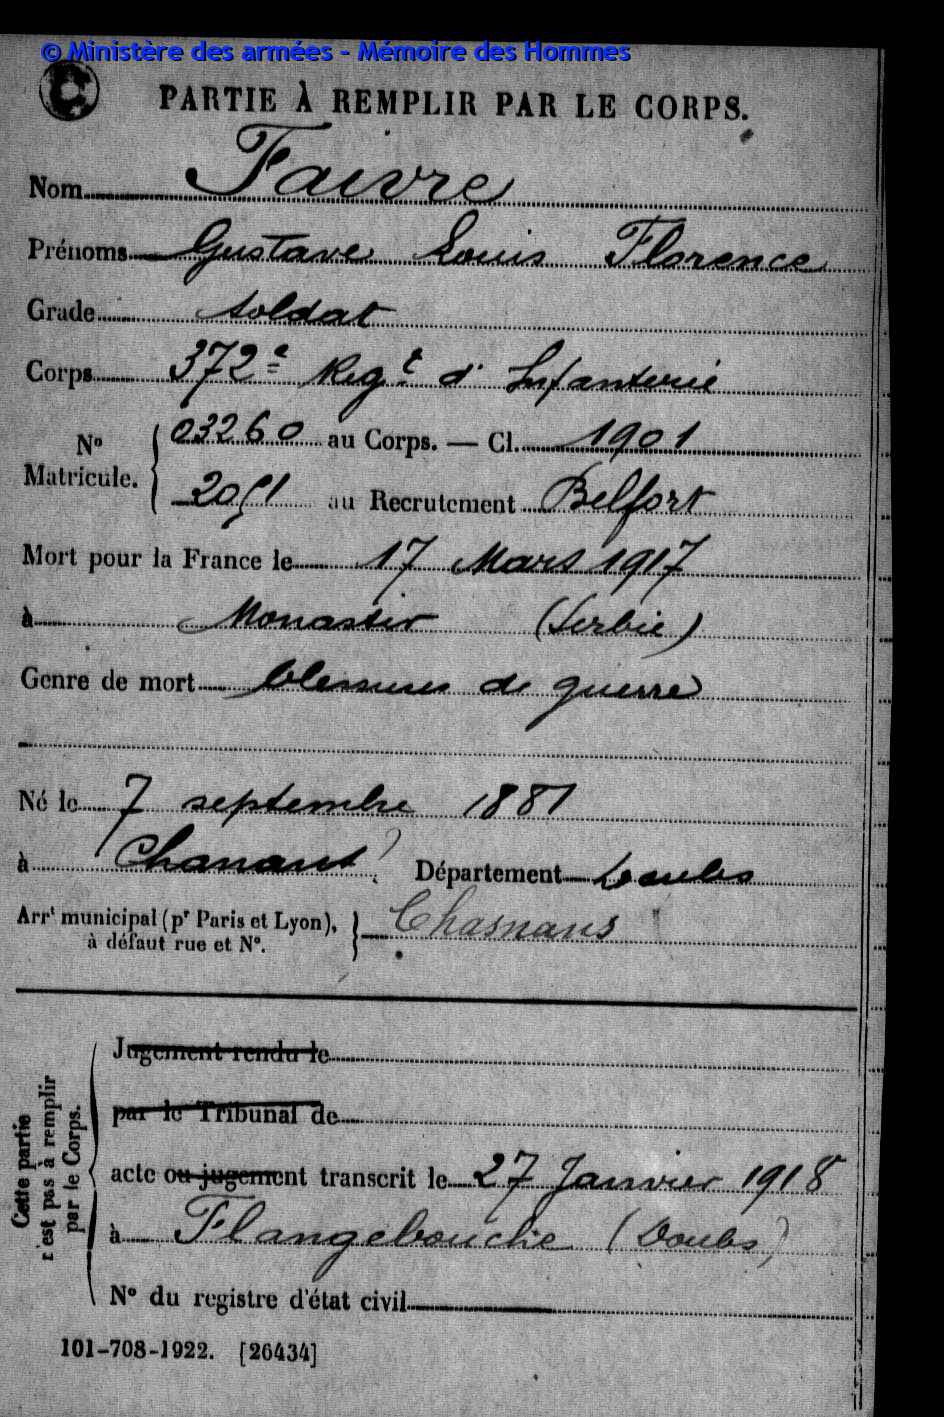 © Ministère des armées - Mémoire des Hommes
C
PARTIE À REMPLIR PAR LE CORPS.
Nom Faivre
Prénoms Gustave Louis Florence
Grade soldat
Corps 372e Regt d' Infanterie
No Matricule. { 03260 au Corps. — Cl. 1901
2051 au Recrutement Belfort
Mort pour la France le 17 Mars 1917
à Monastir (Serbie)
Genre de mort blessures de guerre
Né le 7 septembre 1881
à Chanant ? Département Doubs
Arrt municipal (pr Paris et Lyon), à défaut rue et No. } Chasnans
Cette partie n'est pas à remplir par le Corps.
Jugement rendu le
par le Tribunal de
acte ou jugement transcrit le 27 Janvier 1918
à Flangebouche (Doubs)
No du registre d'état civil
101-708-1922. [26434]